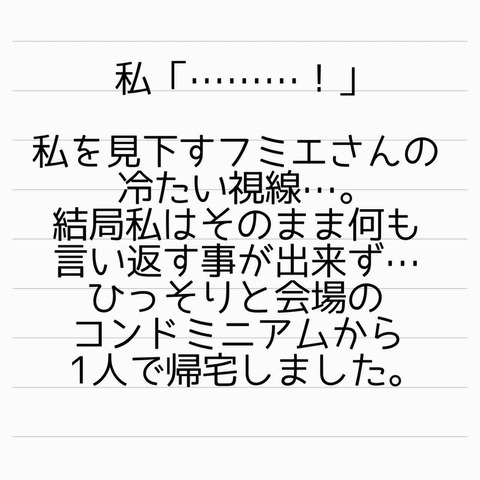 私「………！」
私を見下すフミエさんの
冷たい視線…。
結局私はそのまま何も
言い返す事が出来ず…
ひっそりと会場の
コンドミニアムから
1人で帰宅しました。